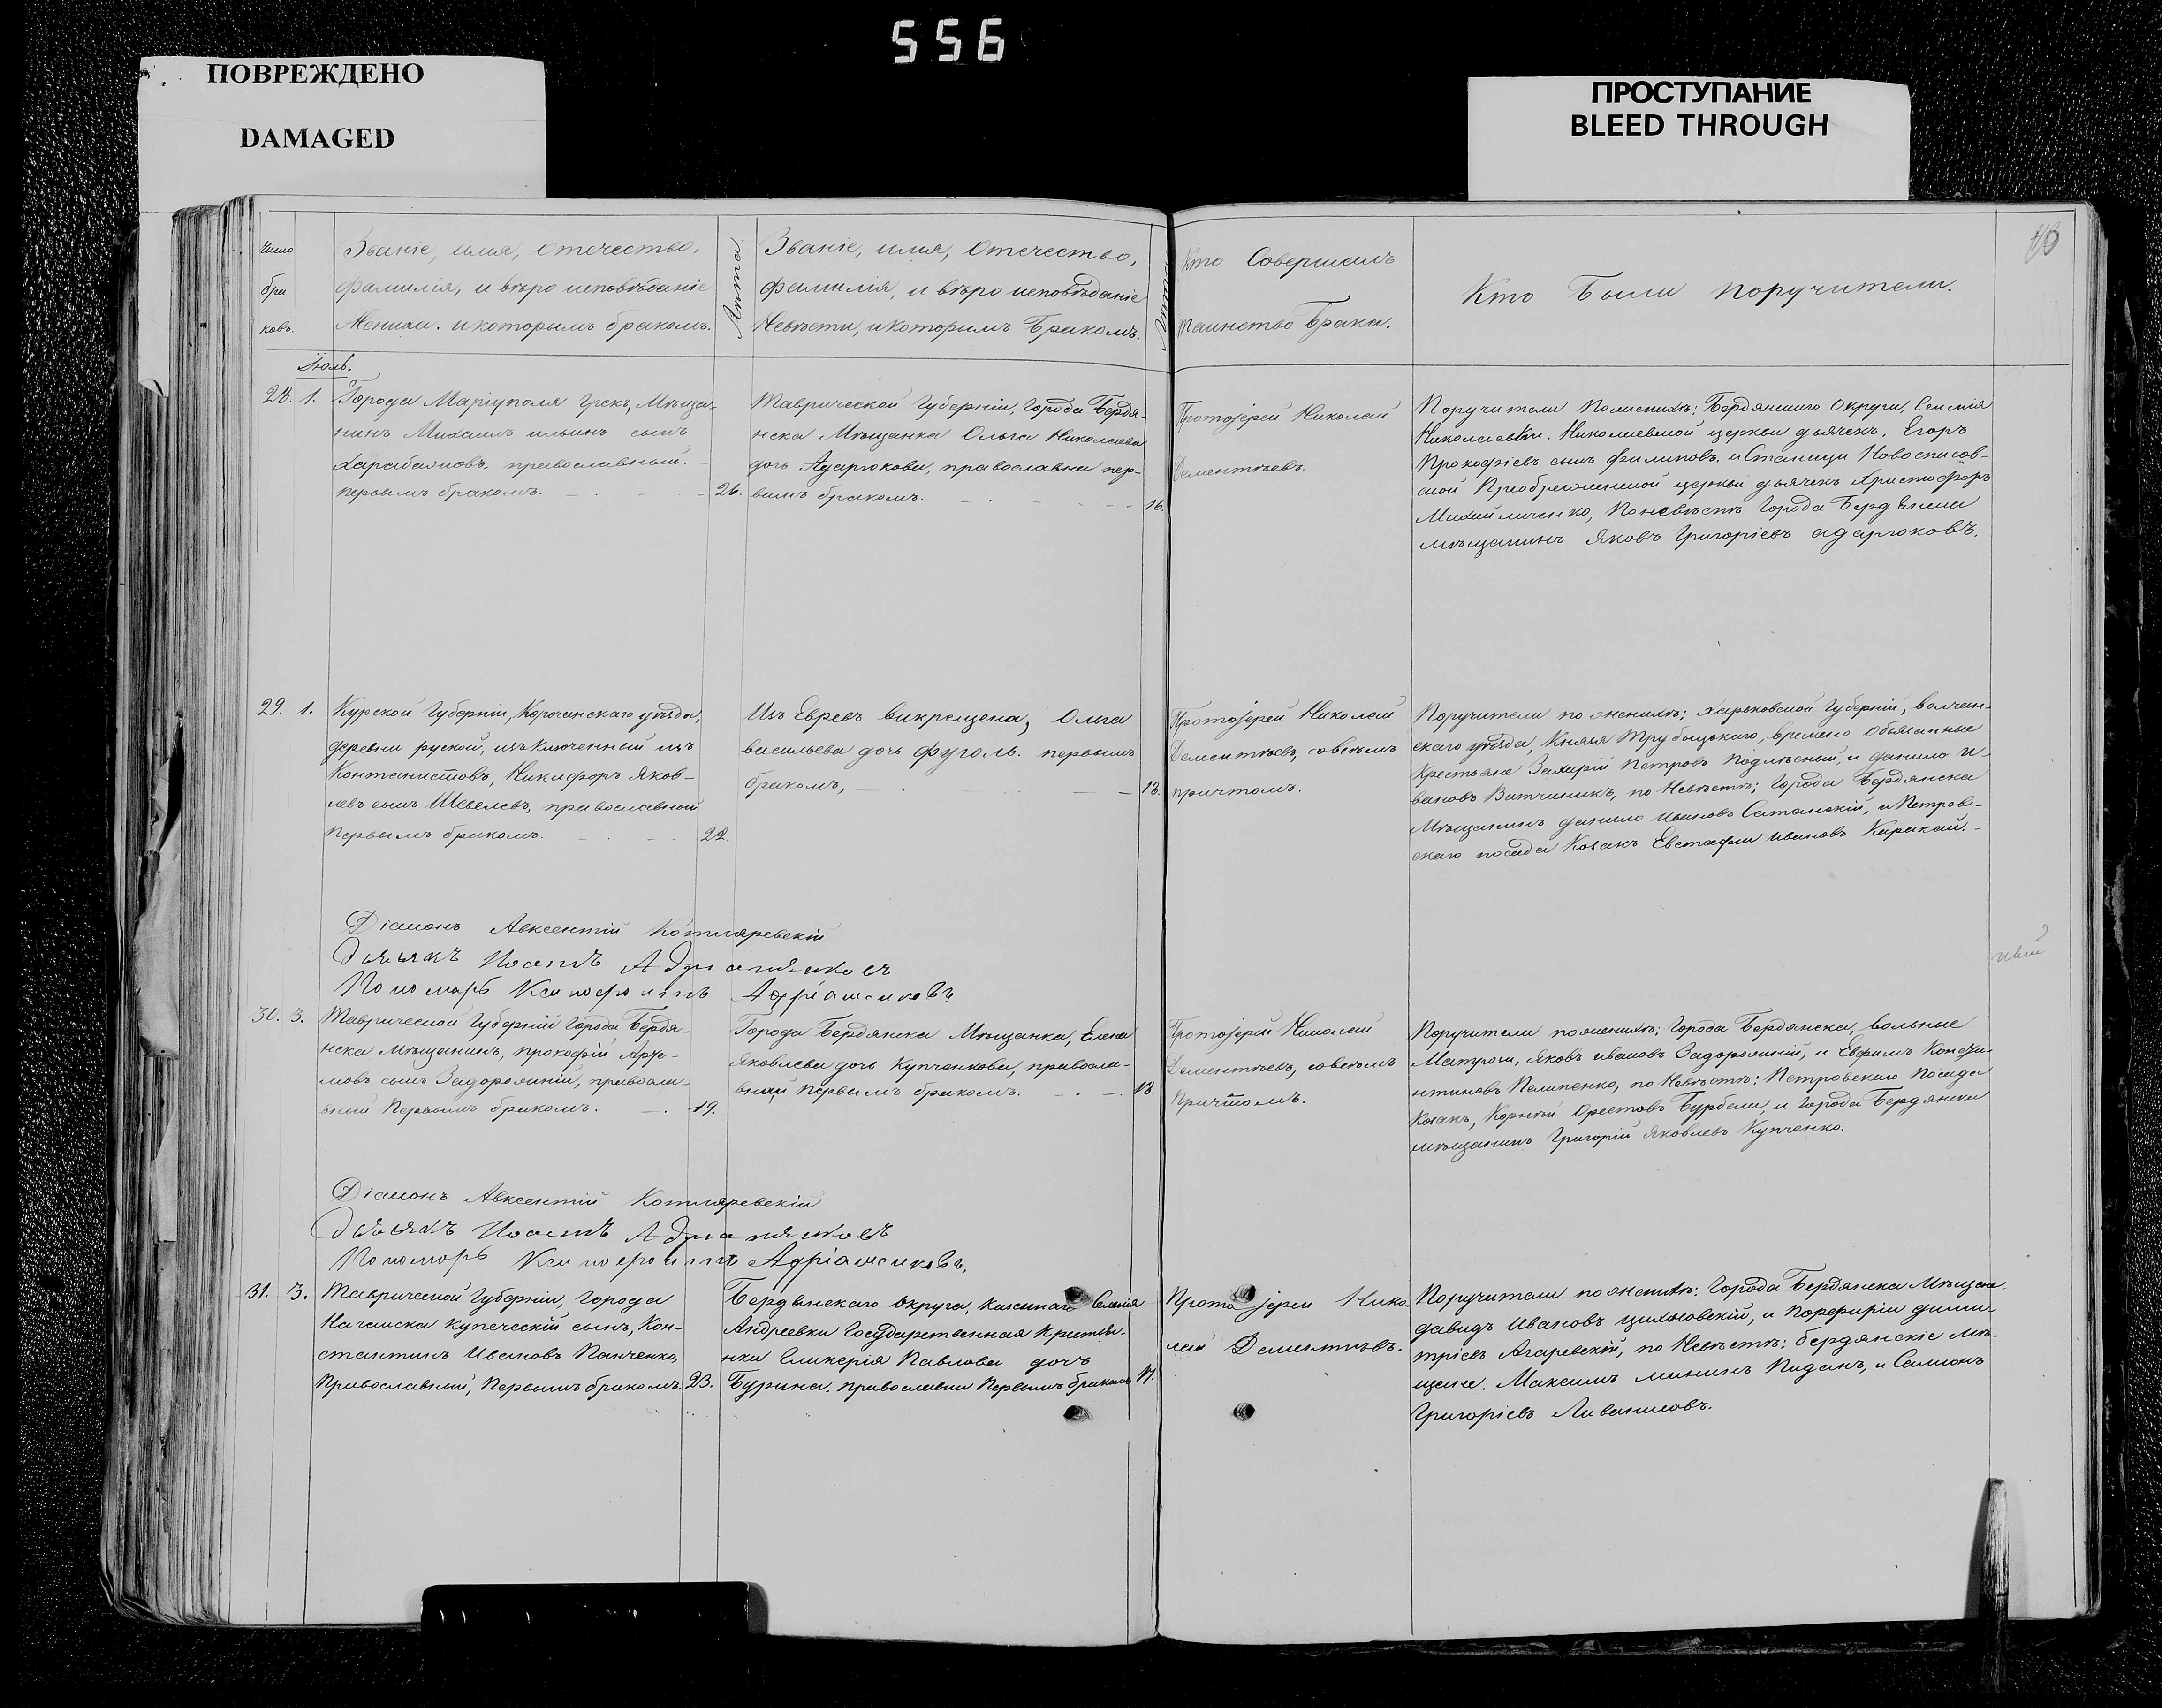 556
ПОВРЕЖДЕНО
DAMAGED
ПРОСТУПАНИЕ
BLEED THROUGH
Число
бра
ковъ.
Званіе, имя, отечество,
фамилія, и вѣро исповѣданіе
Жениха. и которымъ бракомъ.
Лѣта
Званіе, имя, Отечество,
фамилія, и вѣро исповѣданіе
Невѣсты, и которымъ Бракомъ.
Лѣта
Кто Совершалъ
таинство Брака.
Кто Были поручители.
Іюль.
28. 1.
Города Маріуполя Грекъ, Мѣща-
нинъ Михаилъ ильинъ сынъ
харабаджовъ, православный.
первымъ бракомъ. 26.
Таврической Губерніи, Города Бердя-
нска Мѣщанка Ольга Николаева
дочь Адарюкова, православна пер-
вымъ бракомъ. 16.
Протоіерей Николай
Дементьевъ.
Поручители Поженихѣ; Бердянскаго Округа, Селенія
Николаевки. Николаевской церкви дьячекъ, Егоръ
Прокофіевъ сынъ Филиповъ. и Станицы Новоспасов-
ской Преображенской церкви дьячекъ Христофоръ
Михайличенко, Поневѣстѣ Города Бердянска
мѣщанинъ Яковъ Григоріевъ адарюковъ.
29. 1.
Курской Губерніи, Корочанскаго уѣзда,
деревни руской, изъключенный изъ
Контонистовъ, Никифоръ Яков-
левъ сынъ Шевелевъ, православный
первымъ бракомъ. 22.
Изъ Евреевъ викрещена, Ольга
васильева дочь Фуголь. первымъ
бракомъ, 18.
Протоіерей Николай
Дементьевъ, совсѣмъ
причтомъ.
Поручители по женихѣ; Харьковской Губерніи, волчан-
скаго уѣзда, Князя Трубецькаго, времено Обязанные
Крестьяне Захарій Петровъ Подлѣсный, и данило и-
вановъ Витчиникъ, по Невѣстѣ; Города Бердянска
Мѣщанинъ данило ивановъ Сатанскій, и Петров-
скаго посада Козакъ Евстафи ивановъ Каракай.
Діаконъ Авксентій Котляревскій
Дьячекъ Иоаннъ Адріановъ
Пономарь Ксенофонтъ
30. 3.
Таврической Губерніи Города Бердя-
нска Мѣщанинъ, прокофій Арте-
мовъ сынъ Задорожній, правосла-
вный Первымъ бракомъ. 19.
Города Бердянска Мѣщанка, Елена
Яковлева дочь Купченкова, правосла-
вная первымъ бракомъ. 18.
Протоіерей Николай
Дементьевъ, совсѣмъ
Причтомъ.
Поручители поженихѣ; Города Бердянска, вольные
Матрозы, Яковъ ивановъ Задорожній, и Евфимъ Конста-
нтиновъ Пелипенко, по Невѣстѣ; Петровскаго Посада
Козакъ, Корній Орестовъ Бурбела, и Города Бердянска
мѣщанинъ Григорій Яковлевъ Купченко.
Діаконъ Авксентій Котляревскій
Дьячекъ Иоаннъ
Пономарь Ксенофонтъ
31. 3.
Таврической Губерніи, Города
Нагайска купеческій сынъ, Кон-
стантинъ Ивановъ Панченко,
Православный, Первымъ бракомъ. 23.
Бердянскаго округа, казеннаго Селенія
Андреевки Государственная Крестья-
нка Гликерія Павлова дочь
Бурина, православна Первымъ бракомъ 17.
Протоіерей Нико-
лай Дементьевъ.
Поручители по женихѣ: Города Бердянска Мѣщане
давидъ Ивановъ цихновскій, и порфирій дими-
тріевъ Агаревскій, по Невѣстѣ: бердянскіе мѣ-
щане. Максимъ мининъ Пиданъ, и Самсонъ
Григоріевъ Ливенцовъ.